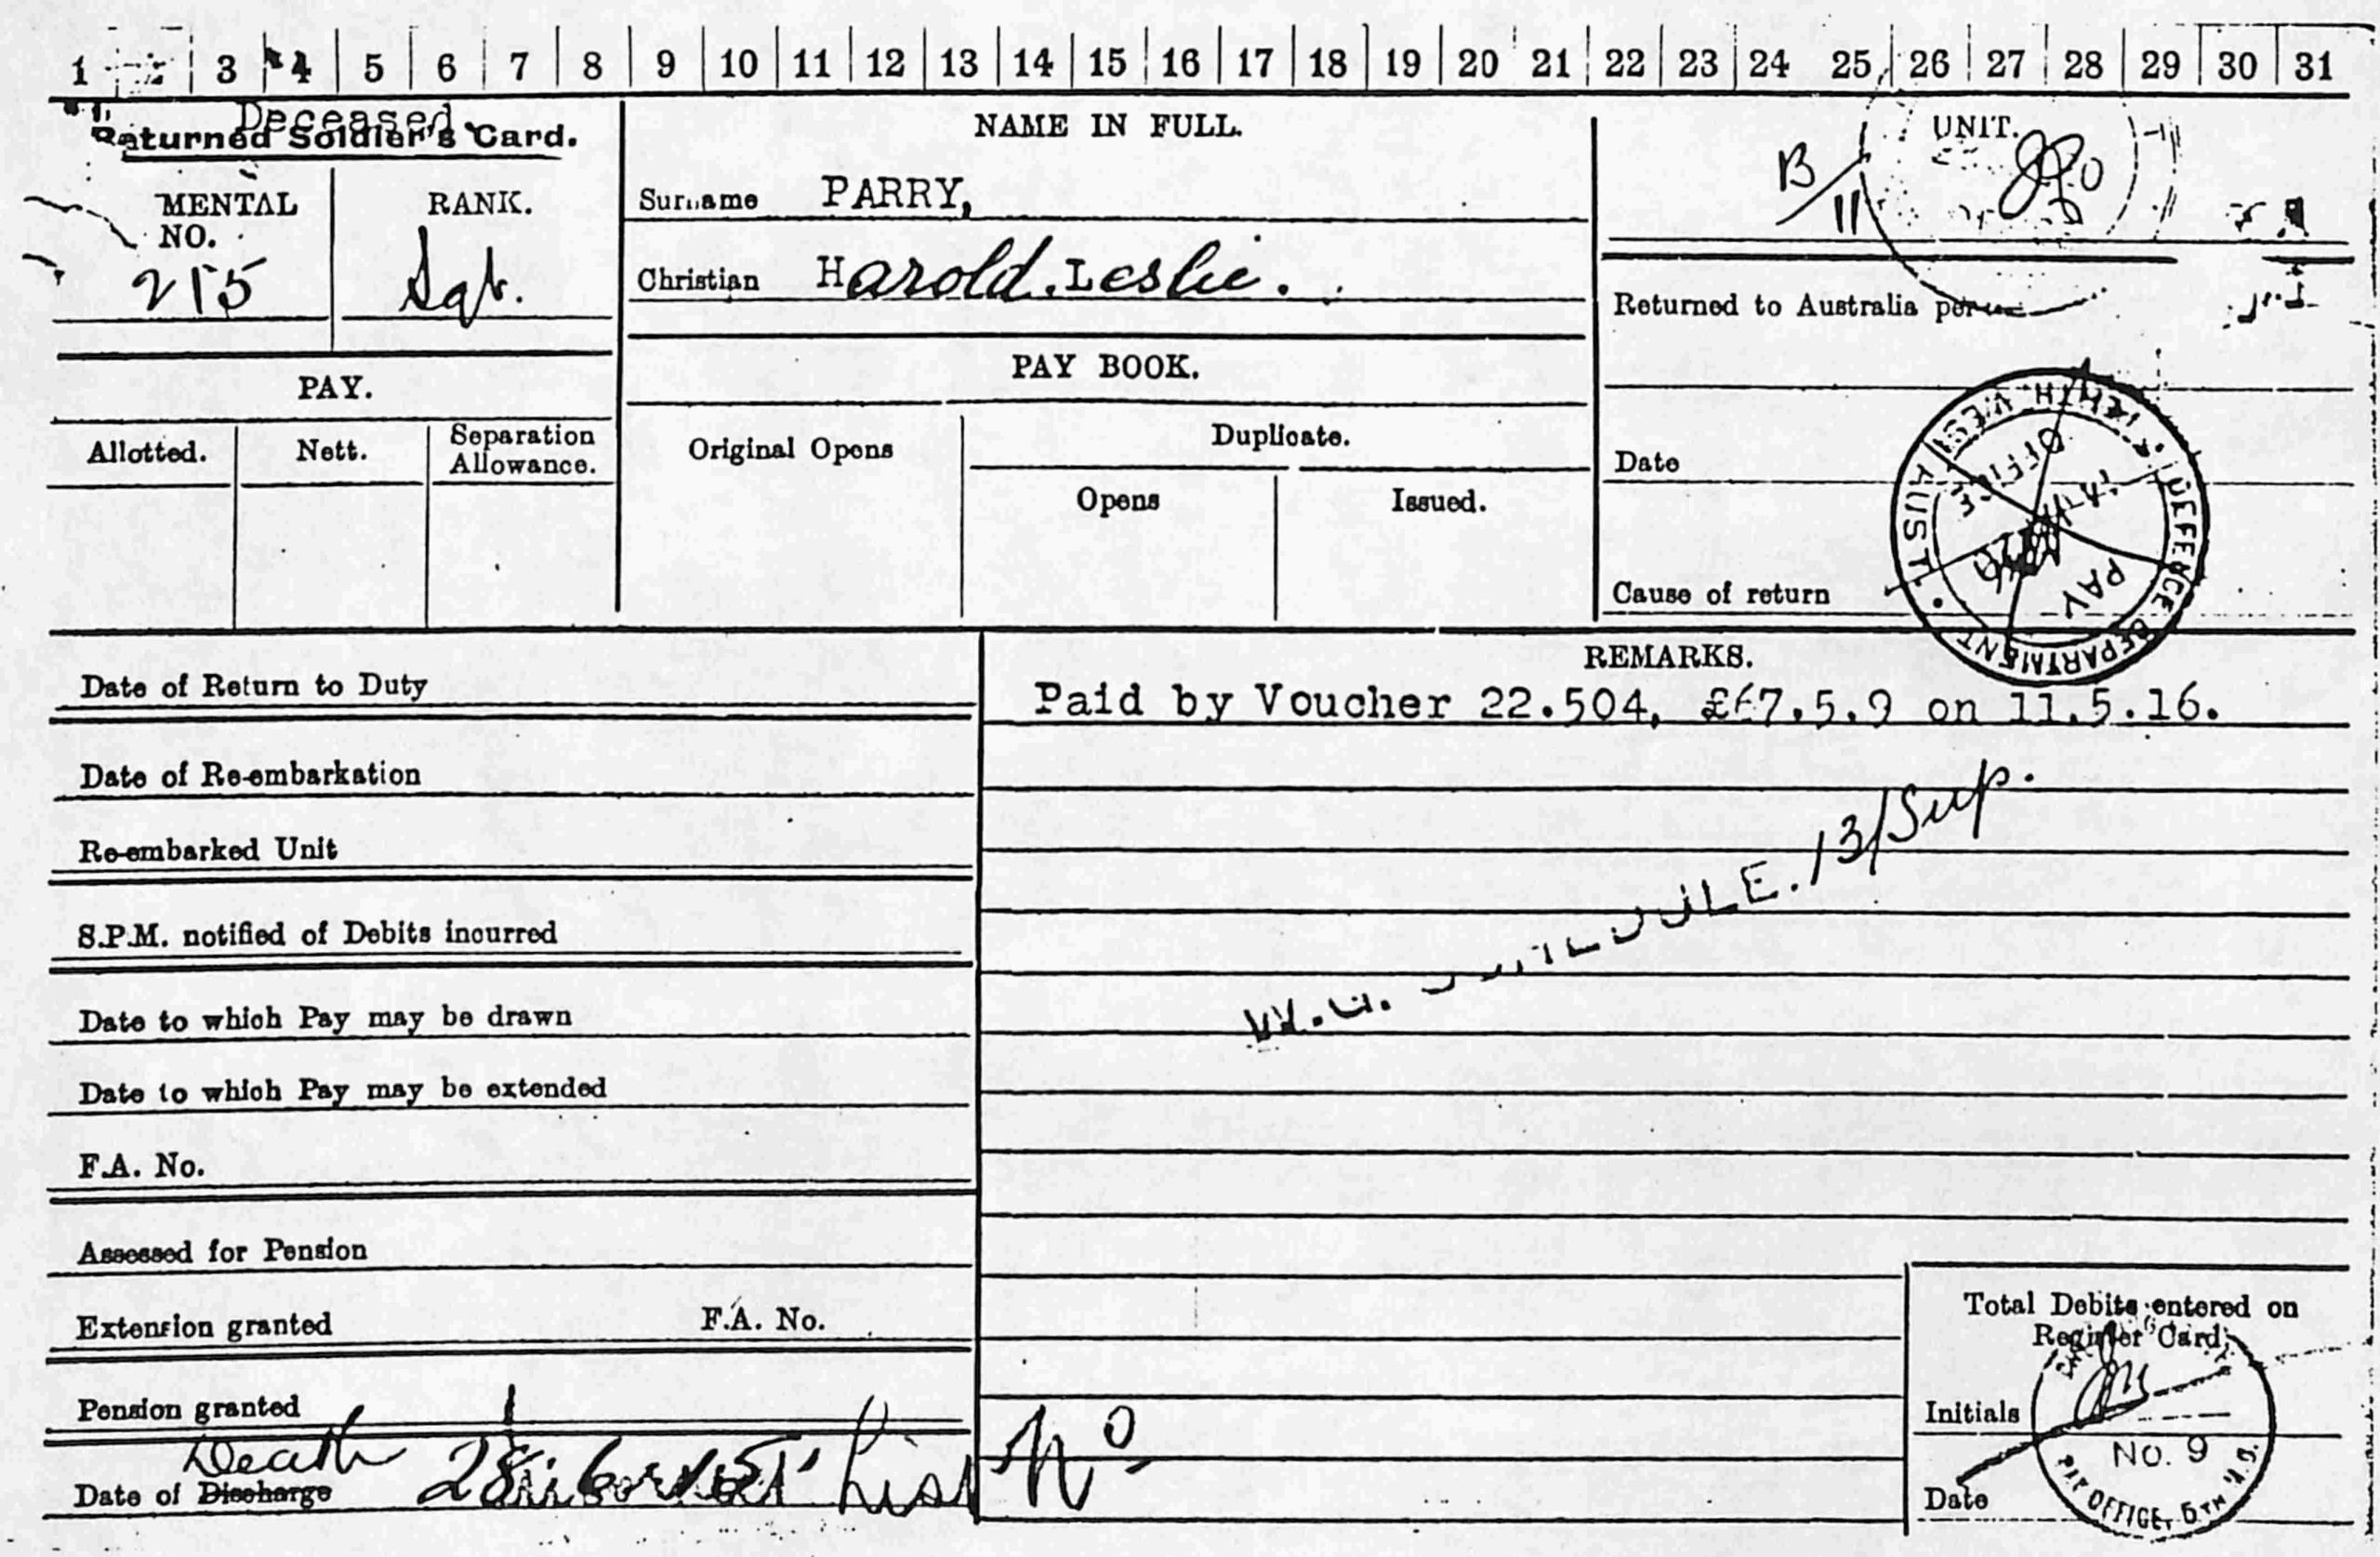 1 3 4 5 6 7 8 9 10 11 12 13 14 15 16 17 18 19 20 21 22 23 24 25 26 27 28 29 30 31
Deceased.
Returned Soldier's Card.
MENTAL NO.
RANK.
215
Sgt.
NAME IN FULL.
Surname PARRY,
Christian Harold. Leslie.
UNIT.
B/11
Returned to Australia per
PAY.
Allotted.
Nett.
Separation Allowance.
PAY BOOK.
Original Opens
Duplicate.
Opens
Issued.
Date
Cause of return
DEFENCE DEPARTMENT WEST AUST.
PAY OFFICE
Date of Return to Duty
Date of Re-embarkation
Re-embarked Unit
S.P.M. notified of Debits incurred
Date to which Pay may be drawn
Date to which Pay may be extended
F.A. No.
Assessed for Pension
Extension granted F.A. No.
Pension granted
Death
Date of Discharge
List No
REMARKS.
Paid by Voucher 22.504, £67.5.9 on 11.5.16.
13/Sup.
Total Debits entered on
Register Card
Initials
Date
NO. 9
PAY OFFICE, 5TH M.D.